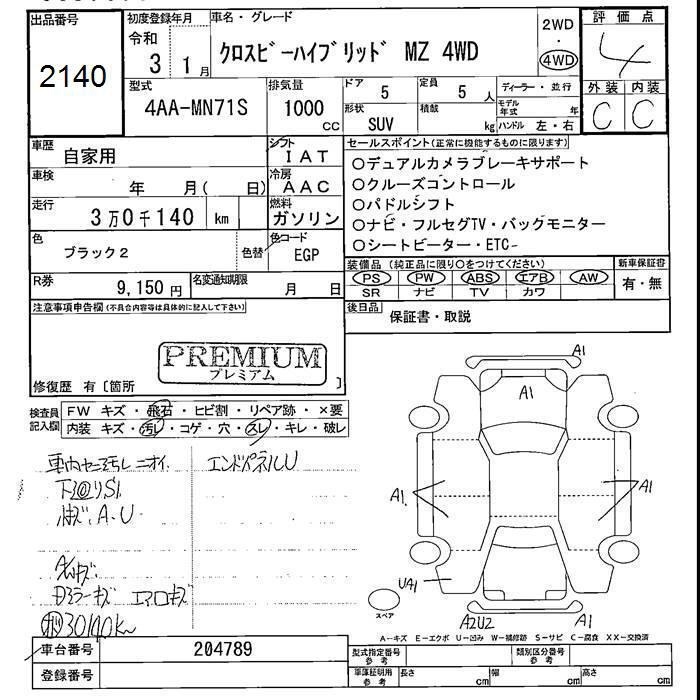 出品番号
2140
初度登録年月
令和
3 1月
車名・グレード
クロスビーハイブリッド MZ 4WD
2WD
・
4WD
評価点
4
型式
4AA-MN71S
排気量
1000
cc
ドア
5
定員
5 人
形状
SUV
積載
kg
ディーラー・並行
モデル年式 年
ハンドル 左・右
外装 内装
C C
車歴
自家用
シフト
IAT
車検
年 月( 日)
冷房
AAC
走行
3万0千140 km
燃料
ガソリン
色
ブラック2
色替
色コード
EGP
R券
9,150円
名変通知期限
月 日
セールスポイント(正常に機能するものに限ります)
○デュアルカメラブレーキサポート
○クルーズコントロール
○パドルシフト
○ナビ・フルセグTV・バックモニター
○シートヒーター・ETC
装備品(純正品に限り○をつけてください)
PS PW ABS エアB AW
SR ナビ TV カワ
新車保証書
有・無
後日品
保証書・取説
注意事項申告欄(不具合内容等は具体的に記入して下さい)
PREMIUM
プレミアム
修復歴 有〔箇所 〕
検査員
記入欄
FW キズ・飛石・ヒビ割・リペア跡・×要
内装 キズ・汚レ・コゲ・穴・スレ・キレ・破レ
車内ヤニ汚レ ニオイ
エンドパネルU
下廻りS1
A.U
AWキズ
ドアミラーキズ エアロキズ
30140km
A1
A1
A1
A1
UA1
A2U2
A1
スペア
A－キズ E－エクボ U－凹み W－補修跡 S－サビ C－腐食 XX－交換済
車台番号
204789
登録番号
型式指定番号
参考
類別区分番号
参考
車庫証明用
参考
長さ cm
幅 cm
高さ cm